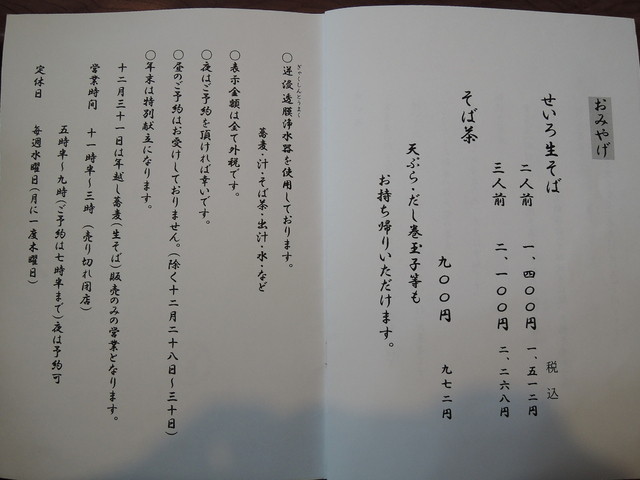 おみやげ
税込
せいろ生そば
二人前 一、四〇〇円 一、五一二円
三人前 二、一〇〇円 二、二六八円
そば茶 九〇〇円 九七二円
天ぷら・だし巻玉子等も
お持ち帰りいただけます。
ぎゃくしんとうまく
〇逆浸透膜浄水器を使用しております。
蕎麦・汁・そば茶・出汁・水・など
〇表示金額は全て外税です。
〇夜はご予約を頂ければ幸いです。
〇昼のご予約はお受けしておりません。(除く十二月二十八日~三十日)
〇年末は特別献立になります。
十二月三十一日は年越し蕎麦(生そば)販売のみの営業となります。
営業時間 十一時半~三時 (売り切れ閉店)
五時半~九時(ご予約は七時半まで)夜は予約可
定休日 毎週水曜日(月に一度木曜日)